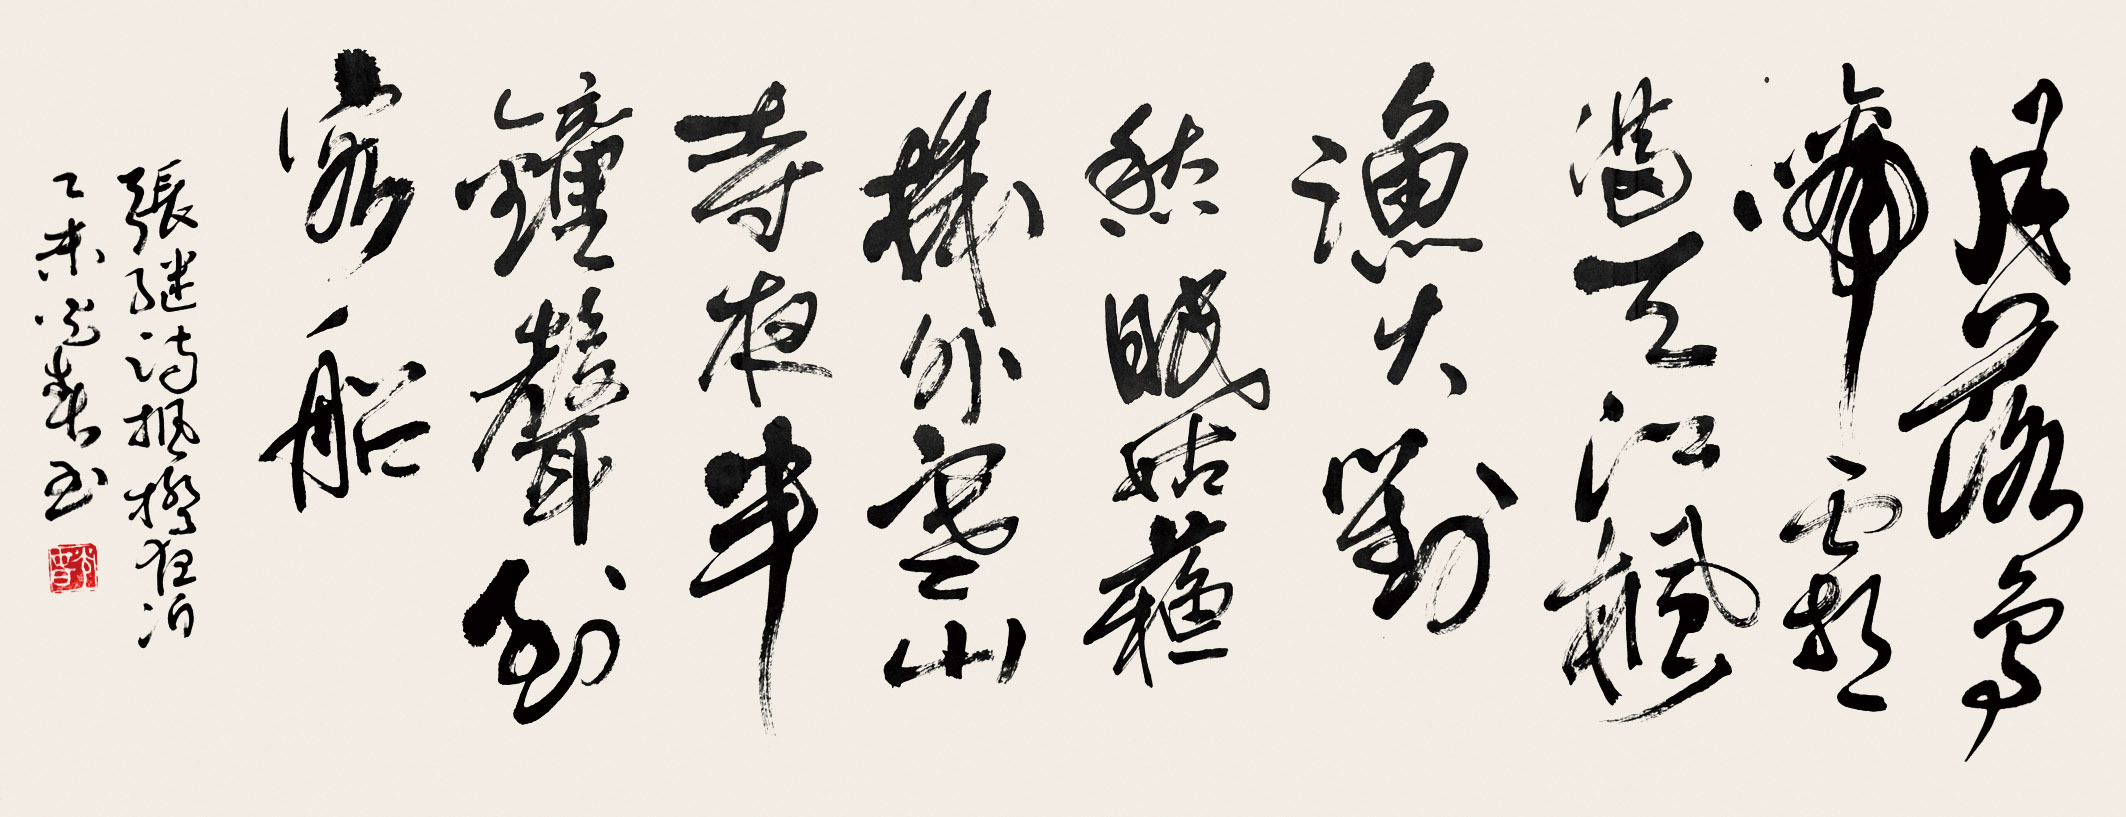 月落烏
啼霜
滿天江楓
漁火對
愁眠姑蘇
城外寒山
寺夜半
鐘聲到
客船
張継诗楓橋夜泊
乙未春书